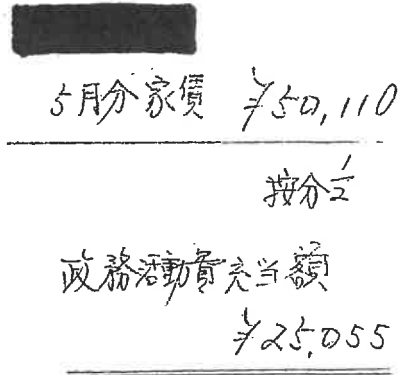 5月分家賃 ¥50,110
按分1/2
政務活動費充当額
¥25,055